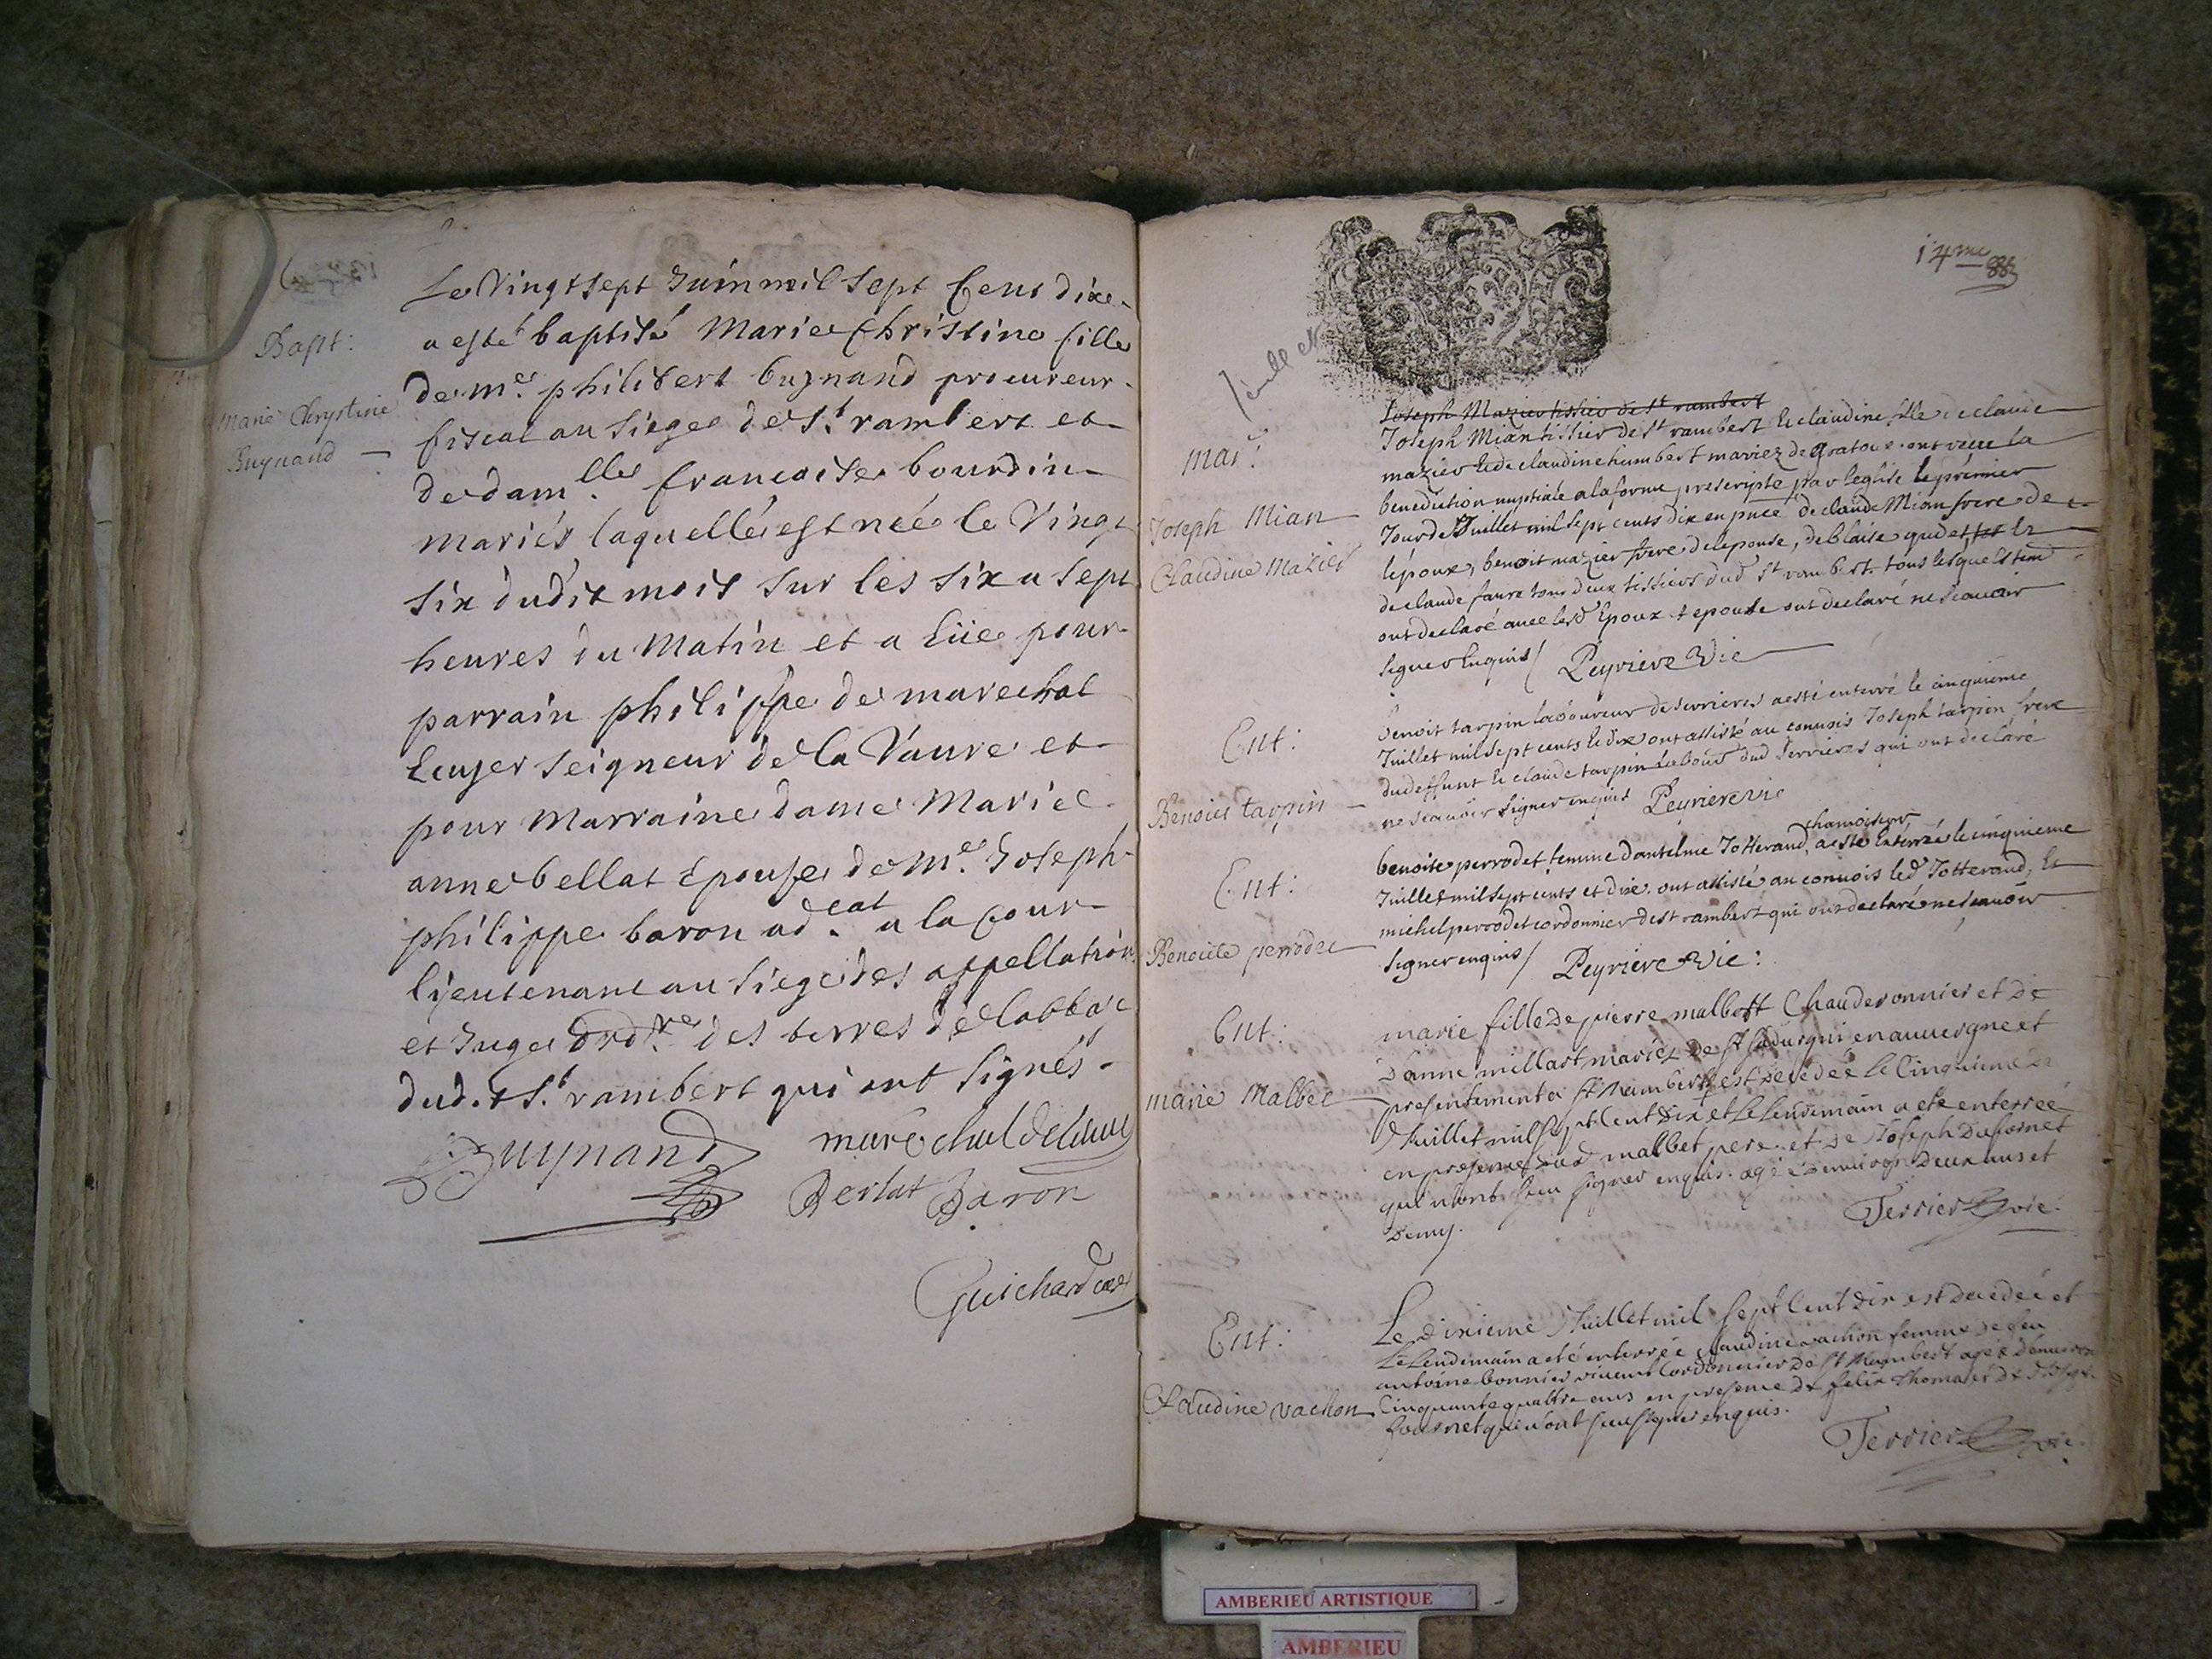 Bapt:
Marie Chrystine
Buynand
Le Vingt sept Juin mil sept Cens dixe
a esté baptisé Marie Christine fille
de me. philibert buynand procureur
fiscal au siege de St. rambert et
de damlle. francoise bourdin
mariés laquelle est née le Vingt
six dudit mois sur les six a sept
heures du Matin et a Eüe pour
parrain philippe de marechal
Ecuyer seigneur de la Vaure et
pour Marraine dame Marie
anne bellat Epouse de Me. Joseph
philippe baron adcat. a la Cour
lieutenant au siege des appellations
et Juge ordre. des terres de labbaie
dud. St. rambert qui ont signés.
Buynand marechal delavaure
Bellat Baron
Guichard
14me
feuillet
mar:
Joseph Mian
Claudine Mazier
Joseph Mazier tissier de St rambert
Joseph Mian tissier de St rambert Et claudine fille de claude
mazier Et de claudine humbert mariez de gratoux ont receu la
benediction nuptiale a la forme prescripte par l'eglise le premier
Jour de Juillet mil sept cents dix en pnce de claude Mian frere de
l'époux, benoit mazier frere de lepouse, de blaise gudet Et
de claude faure tous deux tissiers dud St rambert tous lesquels
ont declaré avec lesd Epoux et epouse ont declaré ne scavoir
signer Enquis / Peyriere Vic
Ent:
Benoict tarpin
benoit tarpin laboureur de serrieres a esté enterré le cinquieme
Juillet mil sept cents Et dix ont assisté au convois Joseph tarpin frere
du deffunt Et claude tarpin labour dud Serrieres qui ont declaré
ne scavoir signer enquis Peyriere vic
Ent:
Benoicte perrodet
chamoiseur
benoite perrodet femme d'antelme Jotterand, a esté Enterrée le cinquieme
Juillet mil sept cents et dix ont assisté au convois led Jotterand, Et
michel perrodet cordonnier de st rambert qui ont declaré ne scavoir
signer enquis / Peyriere Vic:
Ent:
marie Malbec
marie fille de pierre malbet Chauderonnier et de
d'anne millart mariéz de st en auvergne et
presentement a st Rambert est decedée le Cinquieme
Juillet mil sept Cent dix et le Lendemain a ete enterrée
en presence dud malbet pere et de Joseph dufornet
qui n'ont sceu signer enquis. agée d'environ deux ans et
demy. Terrier vic.
Ent:
Claudine vachon
Le dixieme Juillet mil sept Cent dix est decedée et
le Lendemain a eté enterrée claudine vachon femme de feu
antoine bonnier vivant Cordonnier de st Rambert agée d'environ
Cinquante quattre ans en presence de felix thomas et de Joseph
fournet qui n'ont sceu signer enquis.
Terrier vic.
AMBERIEU ARTISTIQUE
AMBERIEU